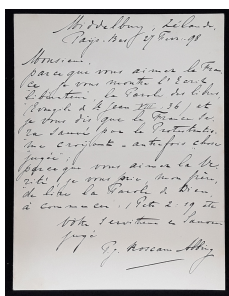 Middelburg, Zélande
Pays-Bas 27 Févr. 98
Monsieur,
parce que vous aimez la Fran-
ce je vous montre l'Ecrit
libérateur, la Parole des libres
(Evangile de St Jean VIII: 36) et
je vous dis que la France se-
ra sauvée par le Protestantis-
me croyant - autrefois chose
jugée;
parce que vous aimez la Vé-
rité je vous prie, mon frère,
de lire la Parole de Dieu
à commencer: 1 Petr. 2:19 etc
Votre serviteur en
jugé